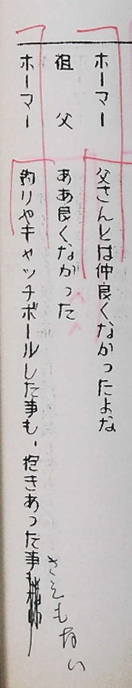 ホーマー 父さんとは仲良くなかったよな
祖父 ああ良くなかった
ホーマー 釣りやキャッチボールした事も、抱きあった事さえもない